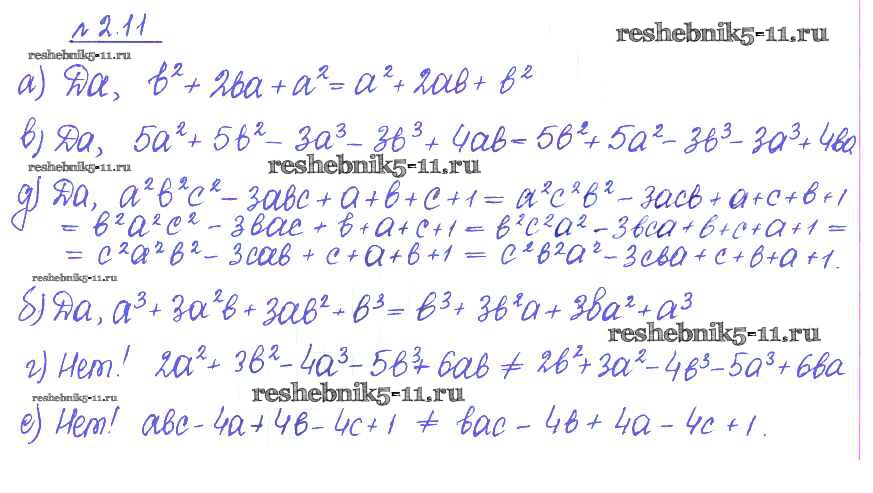 № 2.11
reshebnik5-11.ru
reshebnik5-11.ru
а) Да, b² + 2ba + a² = a² + 2ab + b²
в) Да, 5a² + 5b² - 3a³ - 3b³ + 4ab = 5b² + 5a² - 3b³ - 3a³ + 4ba
reshebnik5-11.ru
reshebnik5-11.ru
д) Да, a²b²c² - 3abc + a + b + c + 1 = a²c²b² - 3acb + a + c + b + 1
= b²a²c² - 3bac + b + a + c + 1 = b²c²a² - 3bca + b + c + a + 1 =
= c²a²b² - 3cab + c + a + b + 1 = c²b²a² - 3cba + c + b + a + 1.
reshebnik5-11.ru
б) Да, a³ + 3a²b + 3ab² + b³ = b³ + 3b²a + 3ba² + a³
reshebnik5-11.ru
г) Нет! 2a² + 3b² - 4a³ - 5b³ + 6ab ≠ 2b² + 3a² - 4b³ - 5a³ + 6ba
reshebnik5-11.ru
reshebnik5-11.ru
е) Нет! abc - 4a + 4b - 4c + 1 ≠ bac - 4b + 4a - 4c + 1.